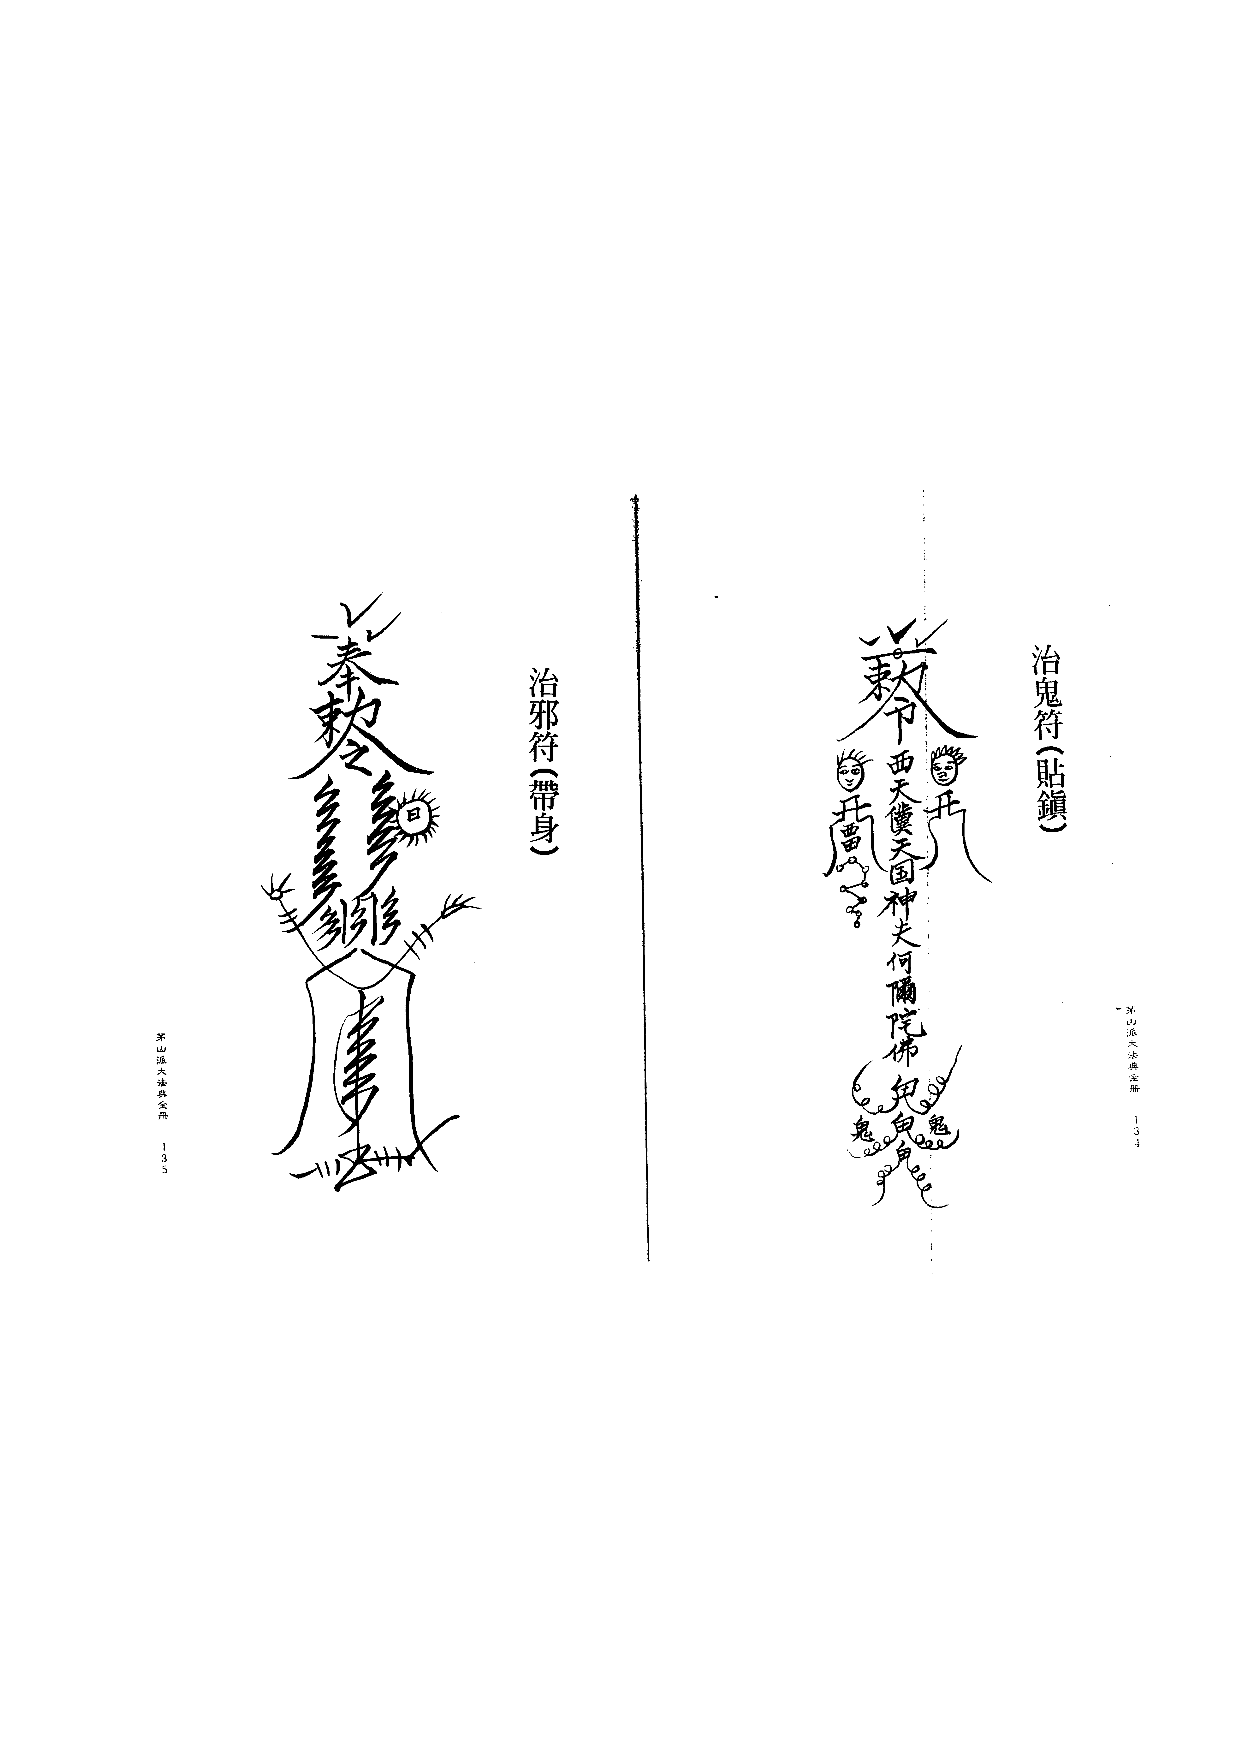 治鬼符(貼鎮)
勅令
西天儻天国神夫何彌陀佛
鬼
鬼
茅山派大法典全冊 134
治邪符(帶身)
奉
勅令
日
茅山派大法典全冊 135